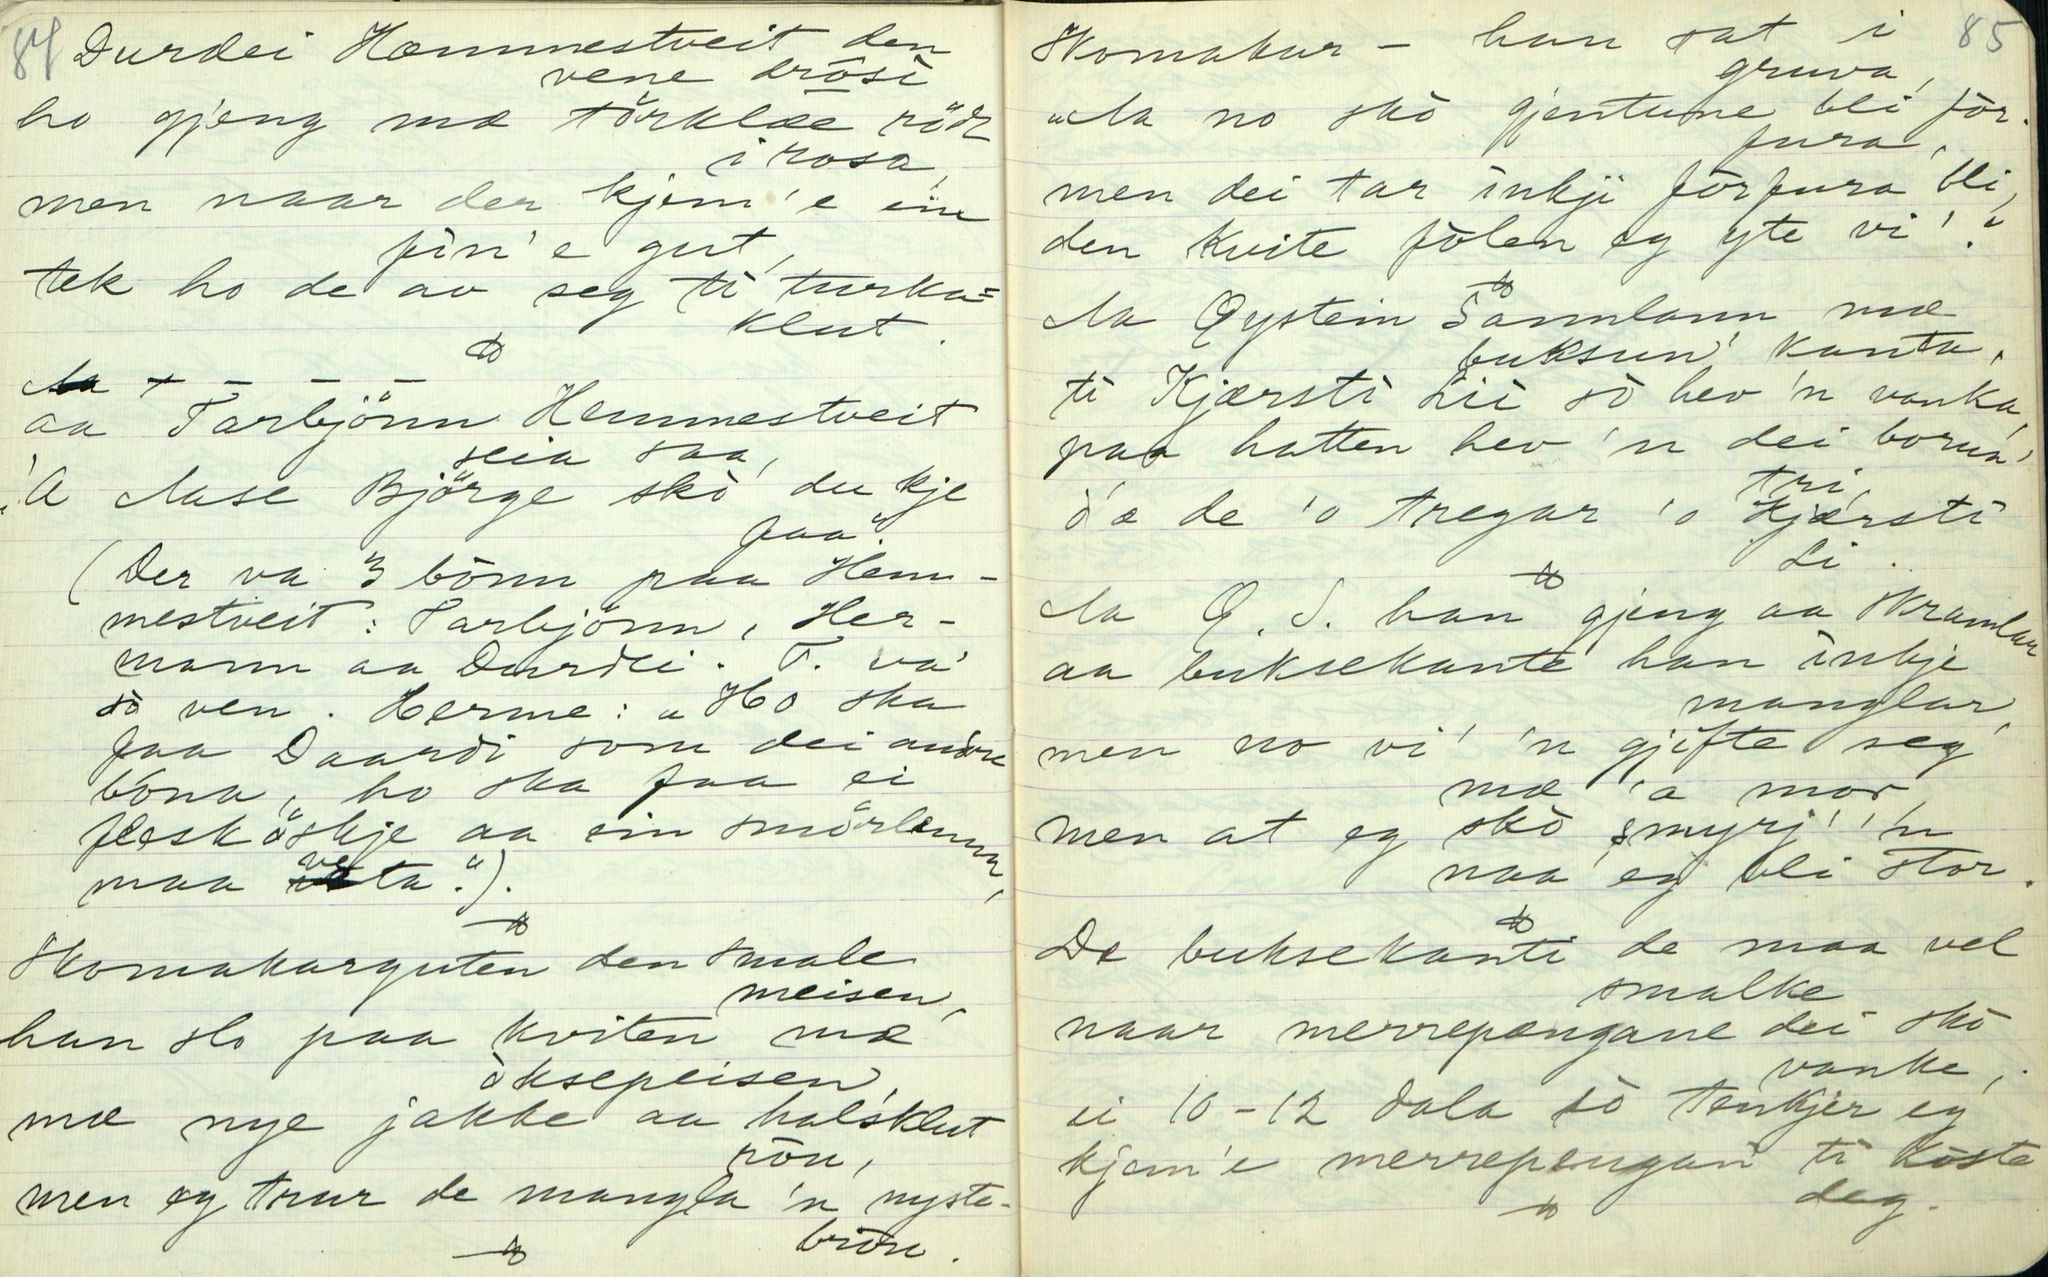 84
Durdei Hæmmestveit den
vene drósi
ho gjeng mæ törklæe rödt
i rosa,
men naar der kjem'e ein
fin'e gut,
tek ho de av seg ti turka=
klut.
Aa – – – –
aa Tarbjönn Hemmestveit
seia saa,
"A Aase Björge skò du kje
faa".
(Der va 3 bönn paa Hem-
mestveit: Tarbjönn, Her-
mann aa Durdei. T. va'
sò ven. Herme: "Ho ska
faa Daardi som dei andre
böna, ho ska faa ei
fleskôskje aa ein smörlemma,
maa veta.").
Skomakarguten den smale
meisen,
han slo paa kviten mæ
òksepeisen,
mæ nye jakke aa halsklut
rön,
men eg trur de mangla 'n nyste-
brön.
85
Skomakar – han sat i
gruva,
"Aa no skò gjentune bli för-
fura,
men dei tar inkji förfura bli,
den kvite fòlen eg yte vi'."
Aa Öystein Sannlann mæ
buksun' kanta,
ti Kjærsti Lii sò hev 'n vanka,
paa hatten hev 'n dei borun'
tri,
ò'æ de 'o tregar 'o Kjærsti
Li.
Aa Ö. S. han gjeng aa skramlar
aa buksekante han inkje
manglar,
men no vi' 'n gjifte seg
mæ 'a mor,
men at eg skò smyrj' 'n
naa eg bli stor.
De buksekanti de maa vel
smalke
naar merrepængane dei skò
vanke,
ei 10–12 dala sò tenkjer eg
kjem'e merrepengan ti kòste
deg.